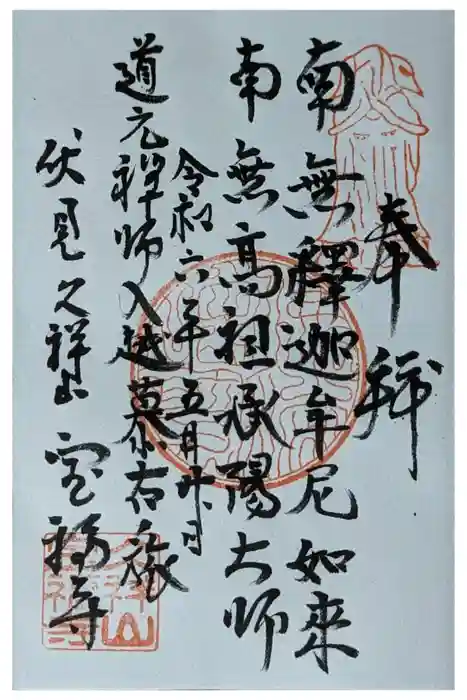 奉拜
南無釋迦牟尼如來
南無高祖承陽大師
令和六年五月廿八日
道元禅師入越慕古之旅
伏見久祥山宝福寺